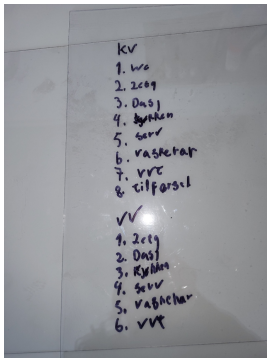 KV
1. WC
2. 2etg
3. Dusj
4. Kjøkken
5. Serv
6. Vaskekar
7. VVC
8. tilførsel
VV
1. 2etg
2. Dusj
3. Kjøkken
4. Serv
5. Vaskekar
6. VVC